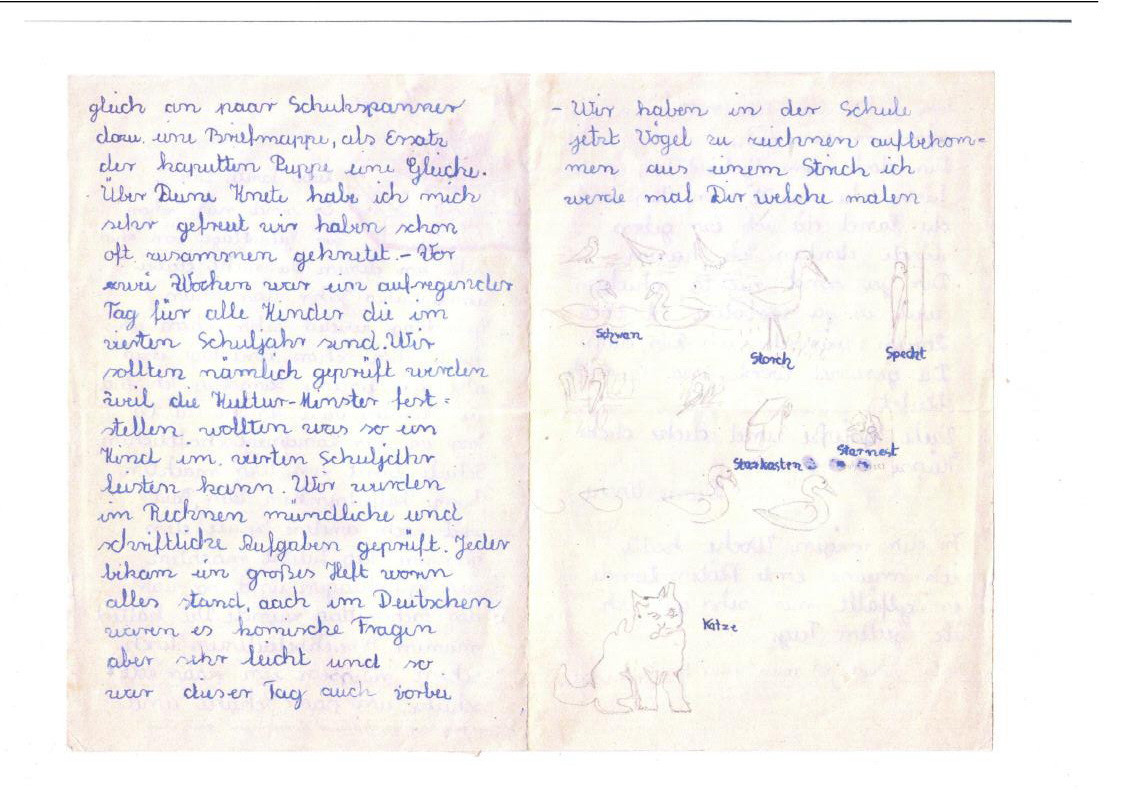 gleich an paar Schukspanner
dazu eine Briefmappe, als Ersatz
der kaputten Puppe eine
Über Deine Knete habe ich mich
sehr gefreut wir haben schon
oft zusammen geknetet. – Vor
zwei Wochen war ein aufregender
Tag für alle Kinder die im
vierten Schuljahr sind. Wir
sollten nämlich geprüft werden
weil die Kultur-Minster fest=
stellen wollten was so ein
Kind im vierten Schuljahr
leisten kann. Wir wurden
im Rechnen mündliche und
schriftliche Aufgaben geprüft. Jeder
bekam ein großes Heft worin
alles stand, auch im Deutschen
waren es komische Fragen
aber sehr leicht und so
war dieser Tag auch vorbei
– Wir haben in der Schule
jetzt Vögel zu zeichnen aufbekom=
men aus einem Strich ich
werde mal Dir welche malen
Schwan
Storch
Specht
Starkasten
Starnest
Katze